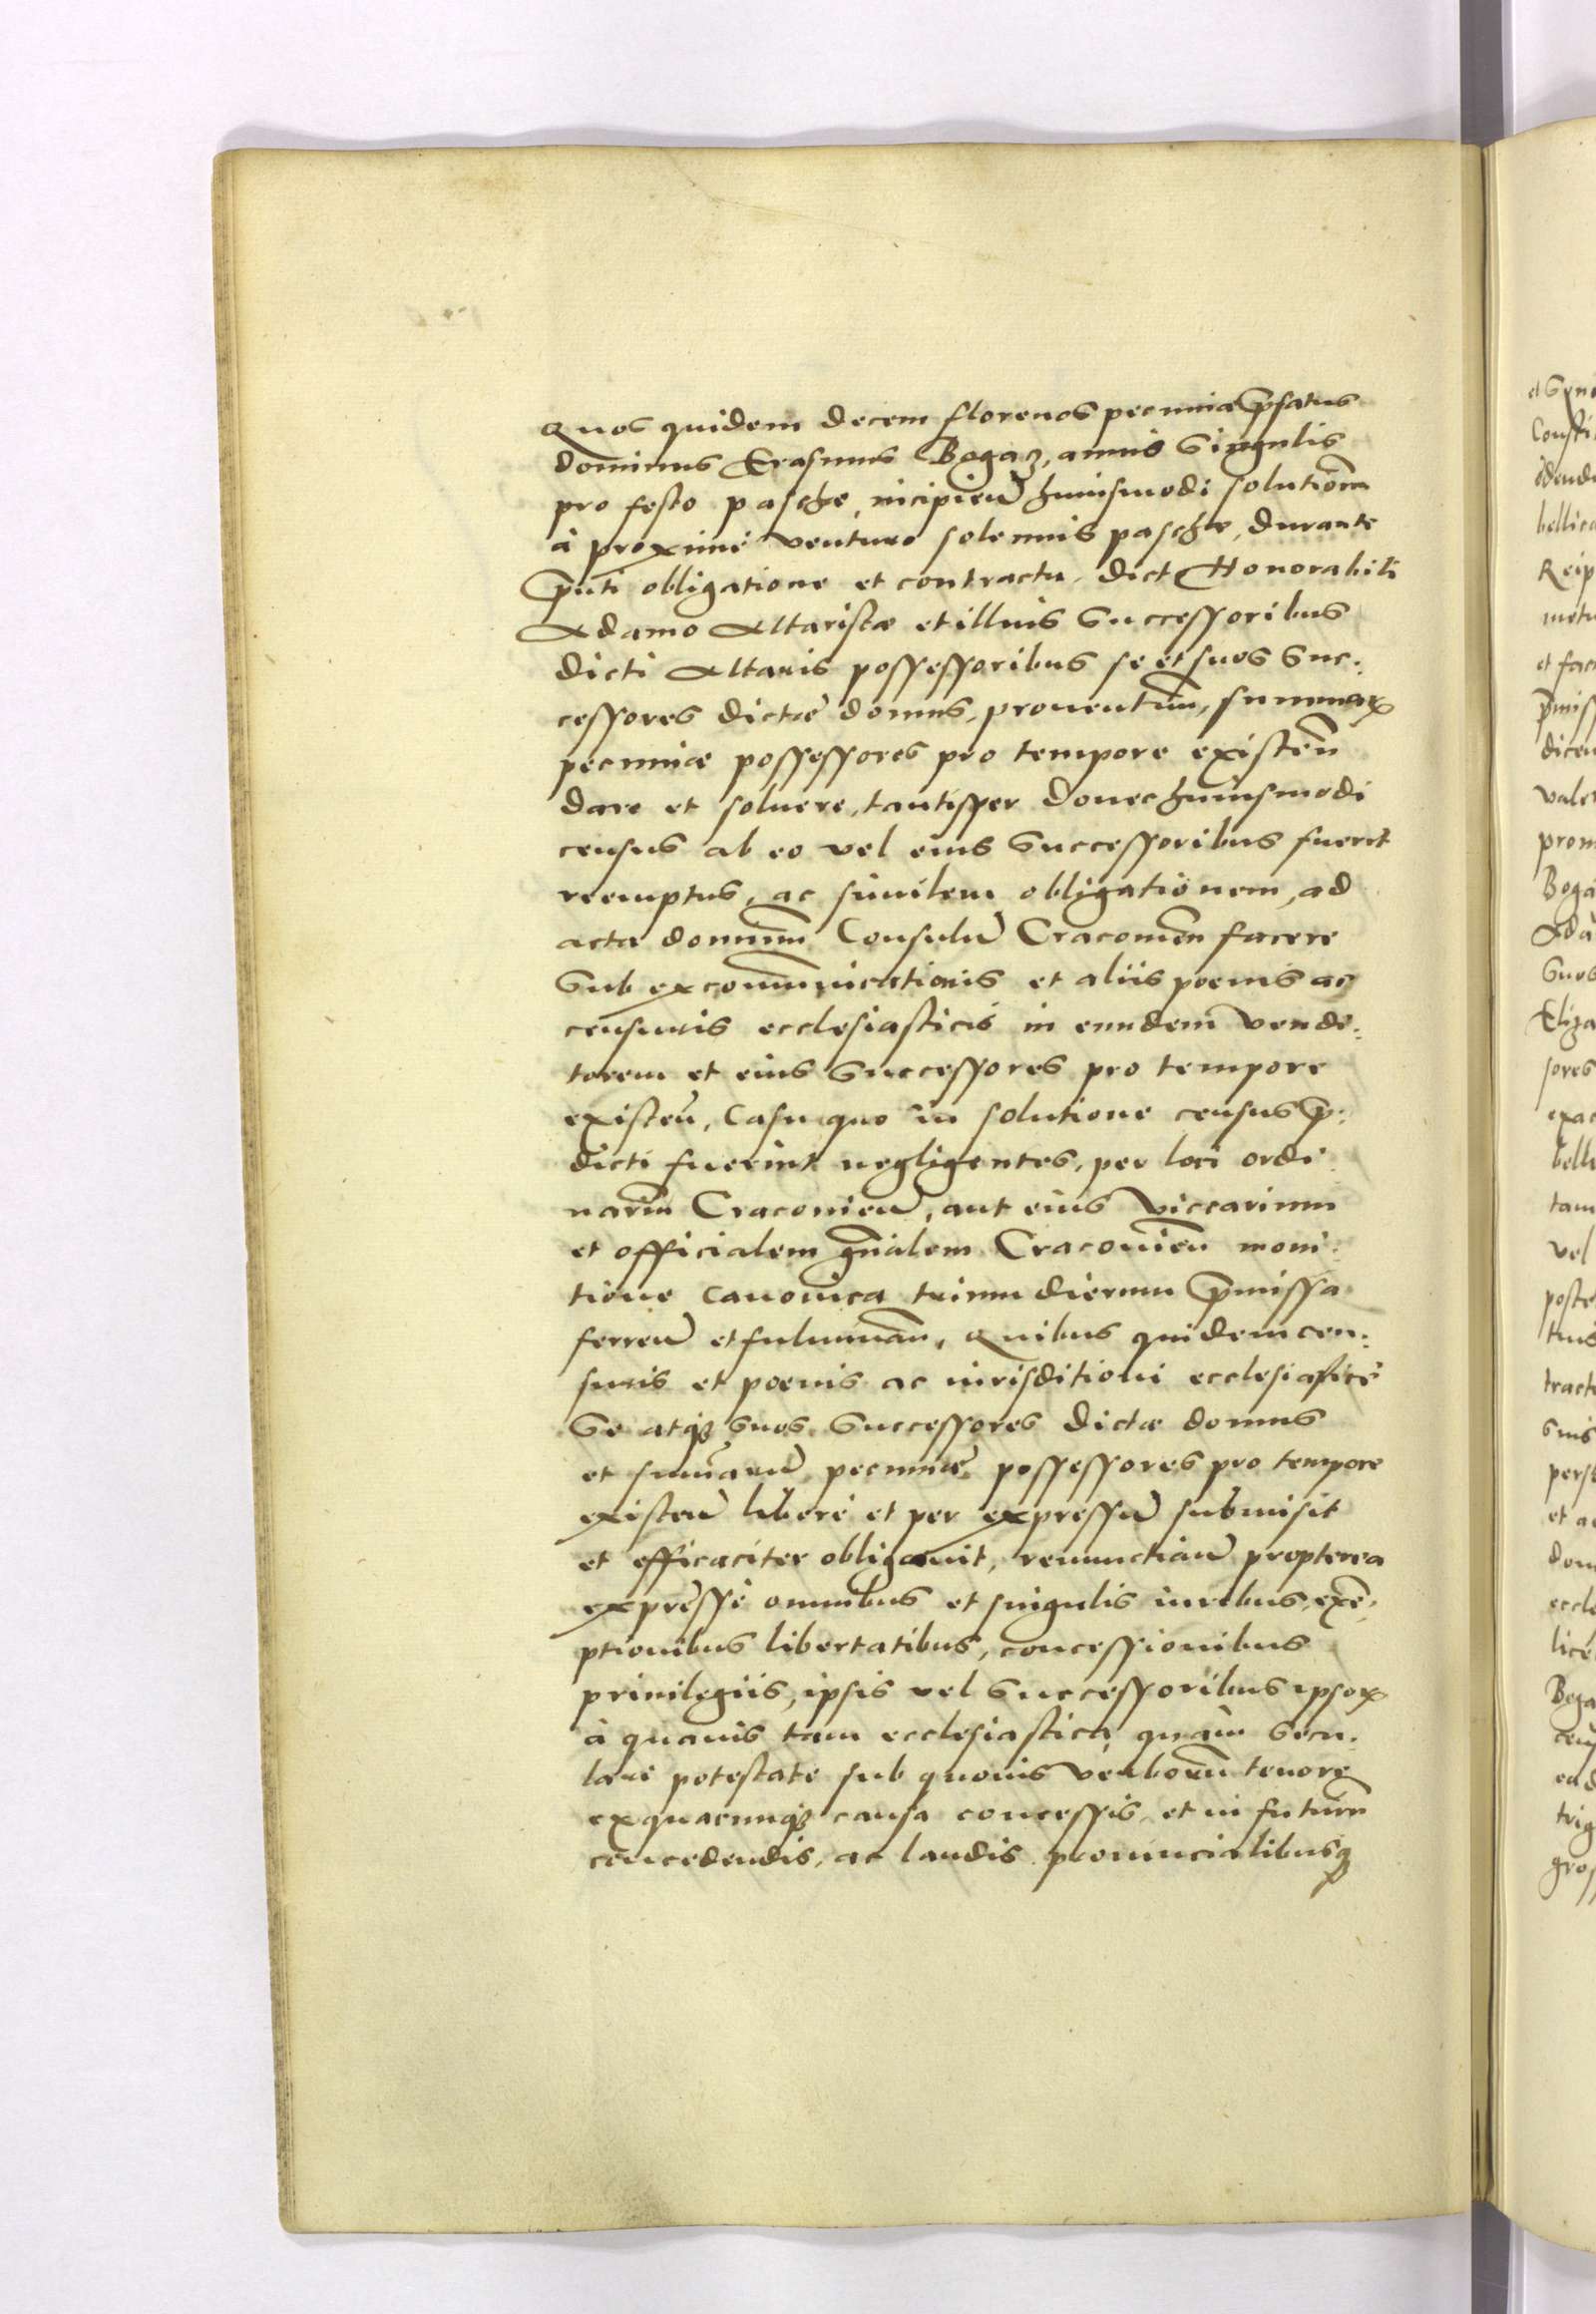 Quos quidem decem florenos pecuniæ p̃fatus
dominus Erasmus Begaz, annis Singulis
pro festo paschæ, incipieñ huiusmodi solutiom̃
à proximè venturo solennis paschæ, durante
p̃nti obligatione et contractu, dict Honorabili
Adamo Altaristæ et illius Successoribus
dicti Altaris possessoribus se et suos Suc:
cessores dictæ domus, prouentum̃, summarꝝ
pecuniæ possessores pro tempore existeñ
dare et soluere, tantisper donec huiusmodi
census ab eo vel eius Successoribus fuerit
reemptus, ac similem obligationem, ad
acta dominũ Consulũ Cracouieñ facere
Sub excom̃unicationis et aliis poenis ac
censuris ecclesiasticis in eundem vendi:
torem et eius Successores pro tempore
existeñ, Casu quo in solutione census p̃:
dicti fuerint negligentes, per loci ordi
nariũ Cracouieñ, aut eius Viccarium
et officialem gñalem Cracouieñ moni:
tione canonica trium dierum p̃missa
ferreñ et fulminañ, Quibus quidem cen:
suris et poenis ac iurisditioni ecclesiasticæ
Se atq̃ suos Successores dictæ domus
et sum̃arũ pecuniæ possessores pro tempore
existeñ liberè et per expressũ submisit
et efficaciter obligauit, renunctiañ propterea
expressè omnibus et singulis iuribus, exẽ:
ptionibus libertatibus, concessionibus
priuilegiis, ipsis vel Successoribus ipsorꝝ
à quauis tam ecclesiastica quàm Secu:
lari potestate sub quouis verborũ tenore
ex quacunq̃ causa concessis et in futurũ
concedendis, ac laudis prouincialibusq̃